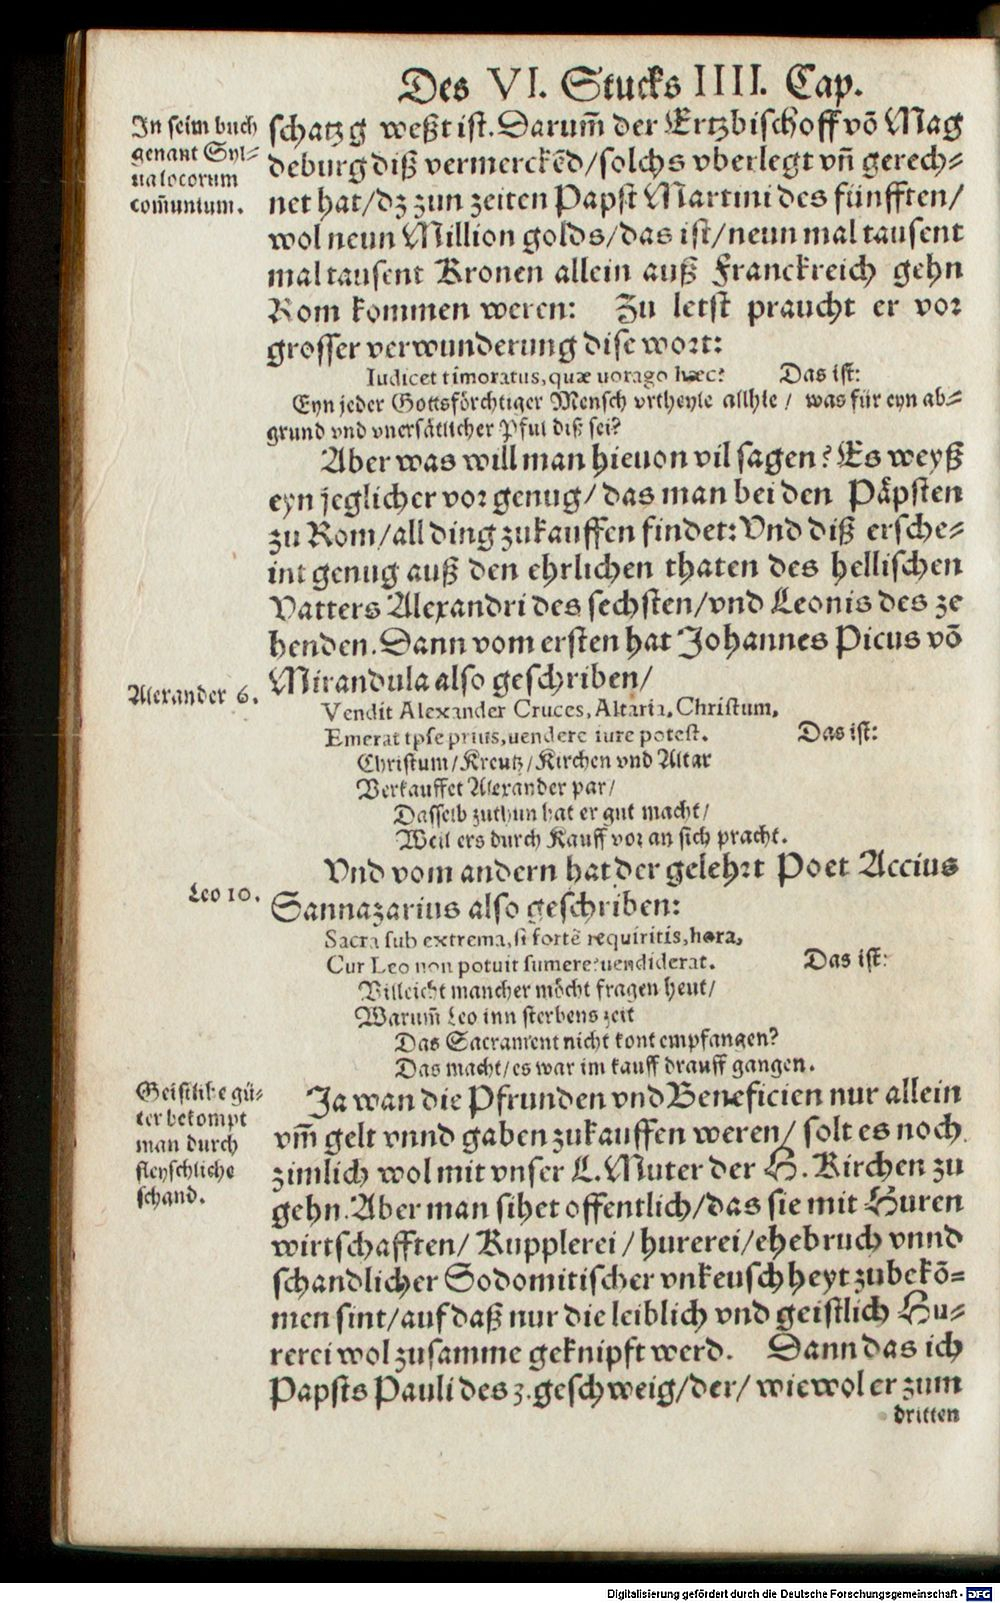 Des VI. Stucks IIII. Cap.
In seim buch
genant Syl-
ua locorum
com̃unium.
schatz g weßt ist. Darum̃ der Ertzbischoff võ Mag
deburg diß vermerckẽd/solchs vberlegt vñ gerech-
net hat/dz zun zeiten Papst Martini des fünfften/
wol neun Million golds/das ist/neun mal tausent
mal tausent Kronen allein auß Franckreich gehn
Rom kommen weren: Zu letst praucht er vor
grosser verwunderung dise wort:
Iudicet timoratus, quæ uorago hæc? Das ist:
Eyn jeder Gottsförchtiger Mensch vrtheyle allhie / was für eyn ab-
grund vnd vnersätlicher Pful diß sei?
Aber was will man hieuon vil sagen? Es weyß
eyn jeglicher vor genug/ das man bei den Päpsten
zu Rom/all ding zukauffen findet: Vnd diß ersche-
int genug auß den ehrlichen thaten des hellischen
Vatters Alexandri des sechsten/vnd Leonis des ze
henden. Dann vom ersten hat Johannes Picus võ
Mirandula also geschriben/
Alexander 6.
Vendit Alexander Cruces, Altaria, Christum,
Emerat ipse prius, uendere iure potest. Das ist:
Christum/Kreutz/Kirchen vnd Altar
Verkauffet Alexander par/
Dasselb zuthun hat er gut macht/
Weil ers durch Kauff vor an sich pracht.
Vnd vom andern hat der gelehrt Poet Accius
Leo 10.
Sannazarius also geschriben:
Sacra sub extrema, si fortè requiritis, hora,
Cur Leo non potuit sumere: uendiderat. Das ist:
Villeicht mancher möcht fragen heut/
Warum̃ Leo inn sterbens zeit
Das Sacrament nicht kont empfangen?
Das macht/es war im kauff drauff gangen.
Geistliche gü-
ter bekompt
man durch
fleyschliche
schand.
Ja wan die Pfrunden vnd Beneficien nur allein
vm̃ gelt vnnd gaben zukauffen weren/ solt es noch
zimlich wol mit vnser L. Muter der H. Kirchen zu
gehn. Aber man sihet offentlich/das sie mit Huren
wirtschafften/ Kupplerei /hurerei/ehebruch vnnd
schandlicher Sodomitischer vnkeuschheyt zubekõ-
men sint/auf daß nur die leiblich vnd geistlich Hu-
rerei wol zusamme geknipft werd. Dann das ich
Papsts Pauli des 3. geschweig/der/ wiewol er zum
dritten
Digitalisierung gefördert durch die Deutsche Forschungsgemeinschaft - DFG